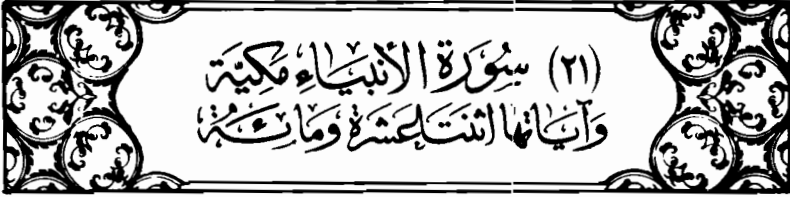 (٢١) سُورَة الأنبيَاءِ مَكيّة
وَآيَاتها اثنتَا عشرَة وَمائة